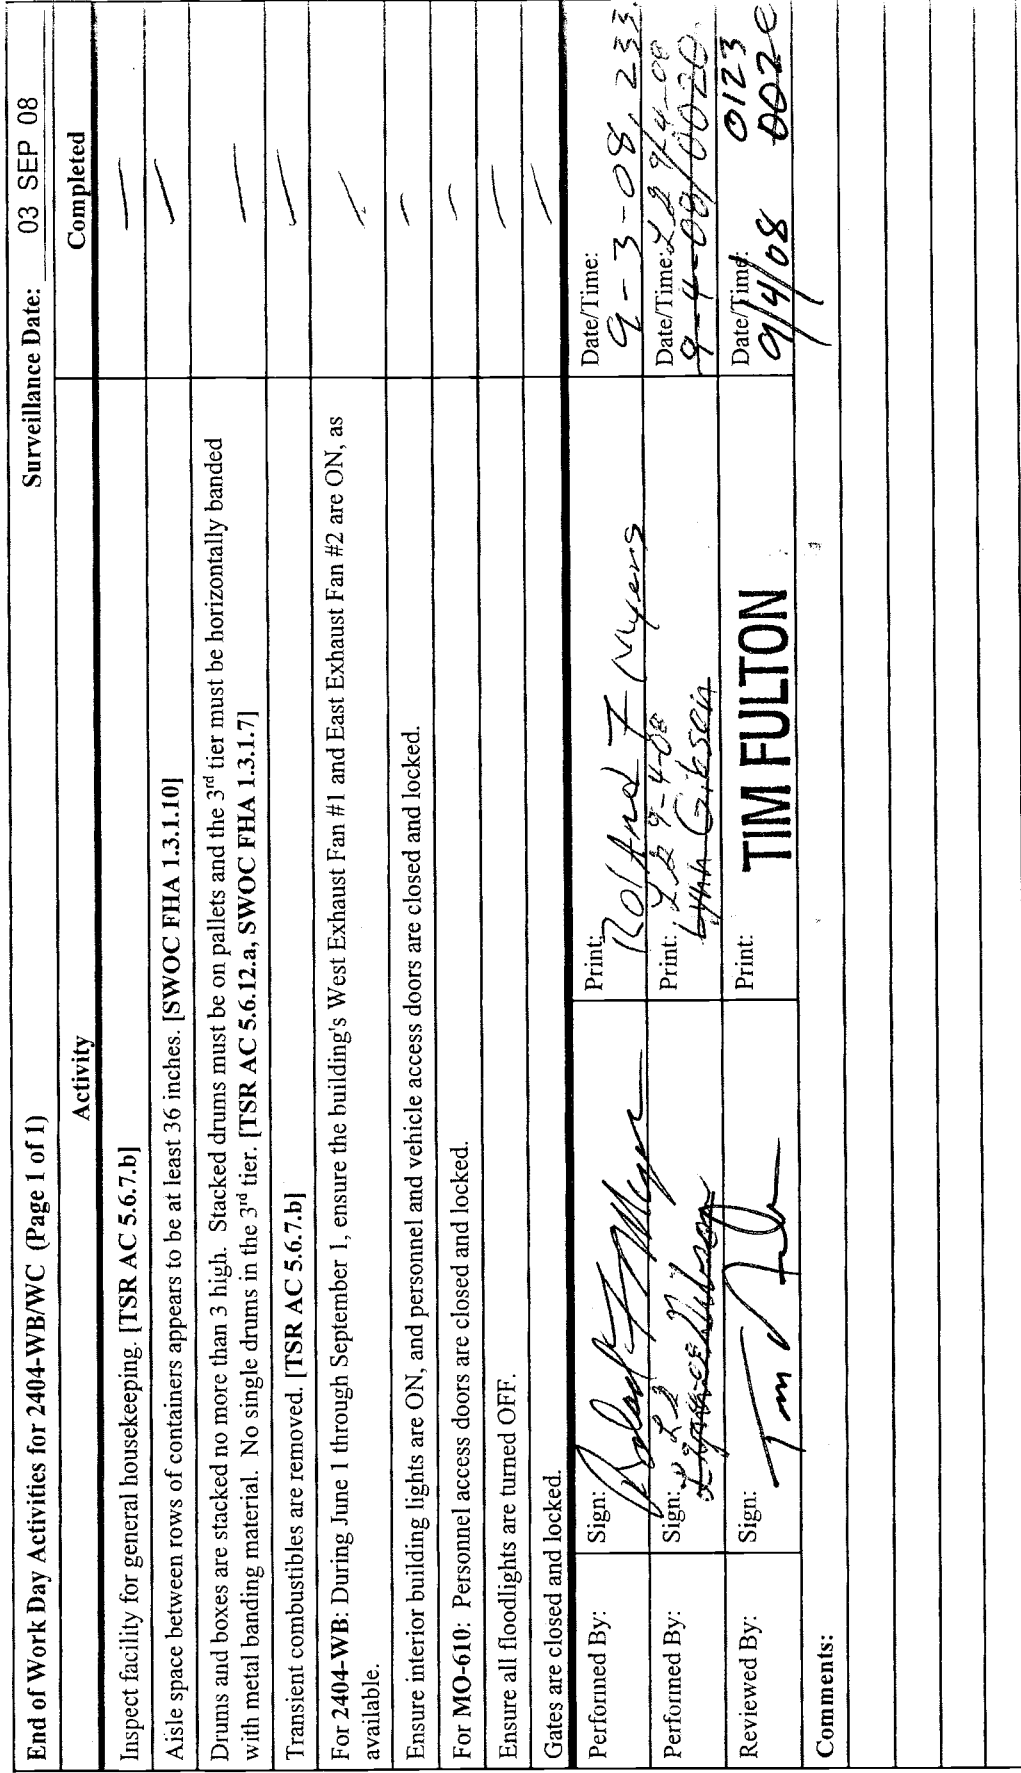 End of Work Day Activities for 2404-WB/WC (Page 1 of 1) Surveillance Date: 03 SEP 08
Activity Completed
Inspect facility for general housekeeping. [TSR AC 5.6.7.b]
Aisle space between rows of containers appears to be at least 36 inches. [SWOC FHA 1.3.1.10]
Drums and boxes are stacked no more than 3 high. Stacked drums must be on pallets and the 3rd tier must be horizontally banded
with metal banding material. No single drums in the 3rd tier. [TSR AC 5.6.12.a, SWOC FHA 1.3.1.7]
Transient combustibles are removed. [TSR AC 5.6.7.b]
For 2404-WB: During June 1 through September 1, ensure the building's West Exhaust Fan #1 and East Exhaust Fan #2 are ON, as
available.
Ensure interior building lights are ON, and personnel and vehicle access doors are closed and locked.
For MO-610: Personnel access doors are closed and locked.
Ensure all floodlights are turned OFF.
Gates are closed and locked.
Performed By: Sign: Print: Roland F Myers Date/Time: 9-3-08,
Performed By: Sign: Print: 9-4-08 Lynn Gibson Date/Time: 9/4-08 9-4-08/0020
Reviewed By: Sign: Tim Print: TIM FULTON Date/Time: 9/4/08 0123
Comments: